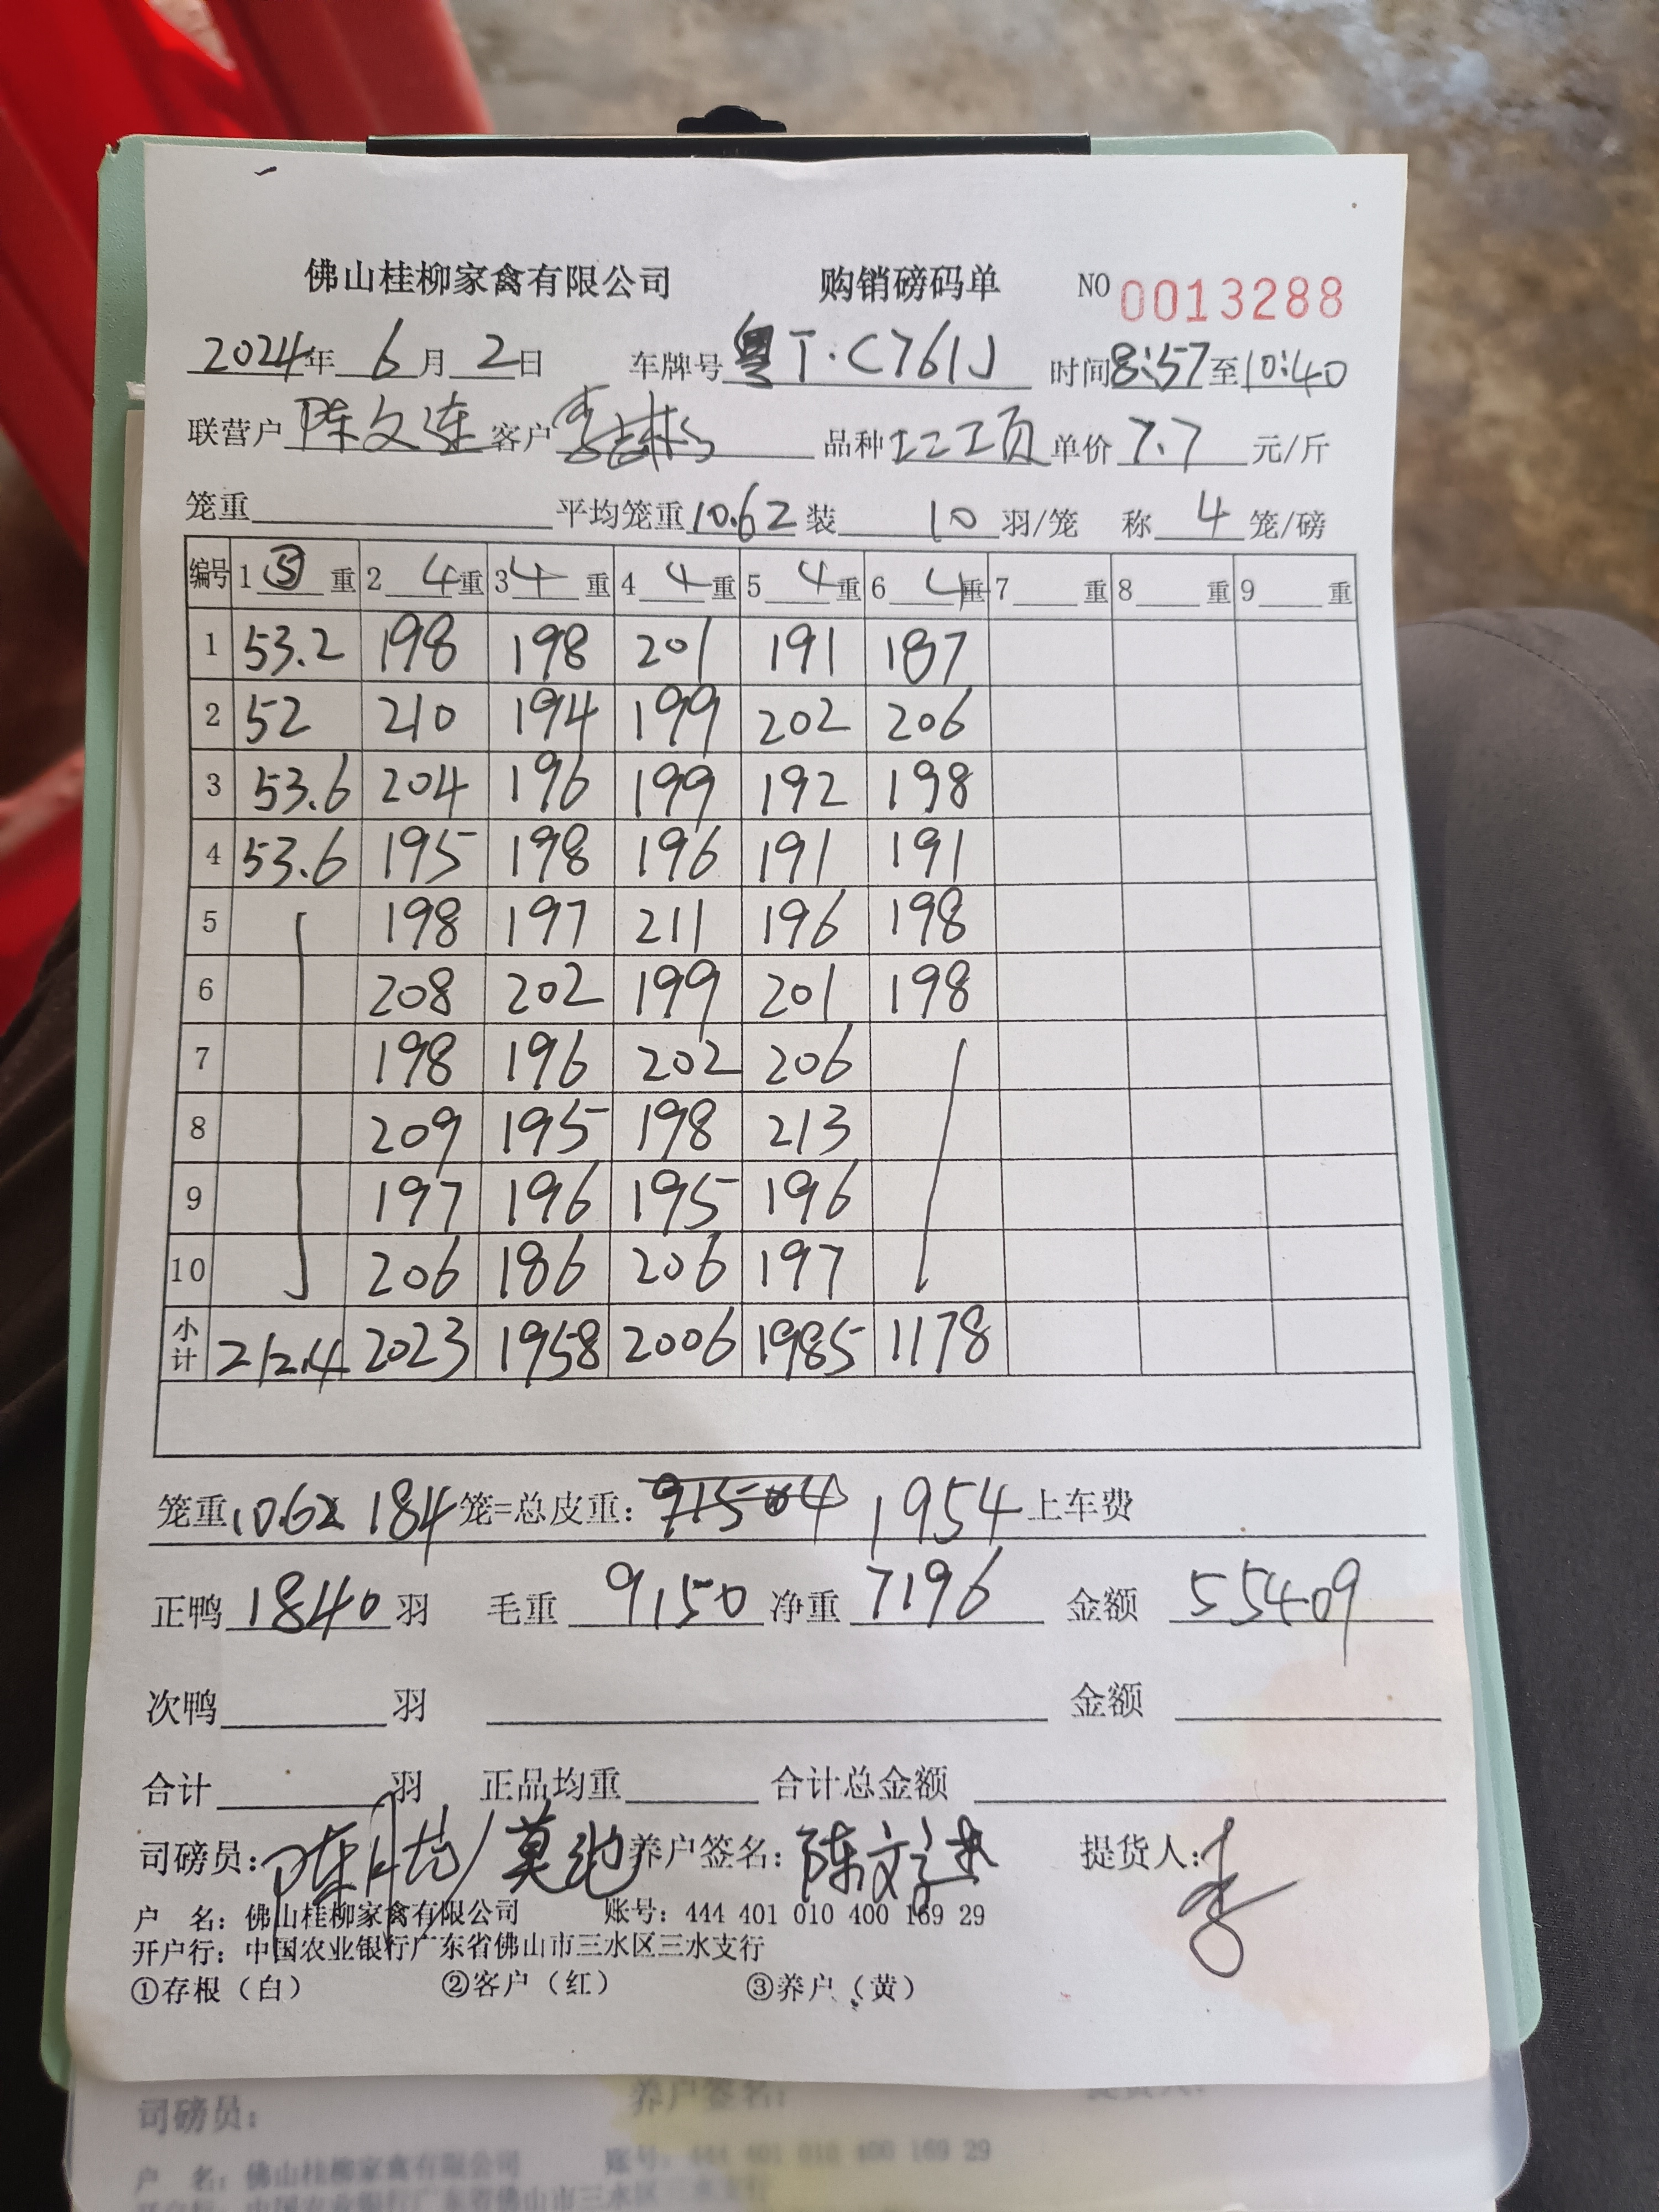 佛山桂柳家禽有限公司 购销磅码单 NO 0013288
2024年 6月 2日 车牌号 粤T·C761J 时间8:57至10:40
联营户 陈文连 客户 品种 土二工页 单价 7.7 元/斤
笼重 平均笼重 10.62 装 10 羽/笼 称 4 笼/磅
编号 1 ⑤ 重 2 4 重 3 4 重 4 4 重 5 4 重 6 4 重 7 重 8 重 9 重
1 53.2 198 198 201 191 187
2 52 210 194 199 202 206
3 53.6 204 196 199 192 198
4 53.6 195 198 196 191 191
5 198 197 211 196 198
6 208 202 199 201 198
7 198 196 202 206
8 209 195 198 213
9 197 196 195 196
10 206 186 206 197
小计 212.4 2023 1958 2006 1985 1178
笼重 10.62 x 184 笼=总皮重: 1954 上车费
正鸭 1840 羽 毛重 9150 净重 7196 金额 55409
次鸭 羽 金额
合计 羽 正品均重 合计总金额
司磅员: 养户签名: 陈文连 提货人: 李
户 名: 佛山桂柳家禽有限公司 账号: 444 401 010 400 169 29
开户行: 中国农业银行广东省佛山市三水区三水支行
①存根（白） ②客户（红） ③养户（黄）
司磅员: 养户签名: 提货人:
户 名: 佛山桂柳家禽有限公司 账号: 444 401 010 400 169 29